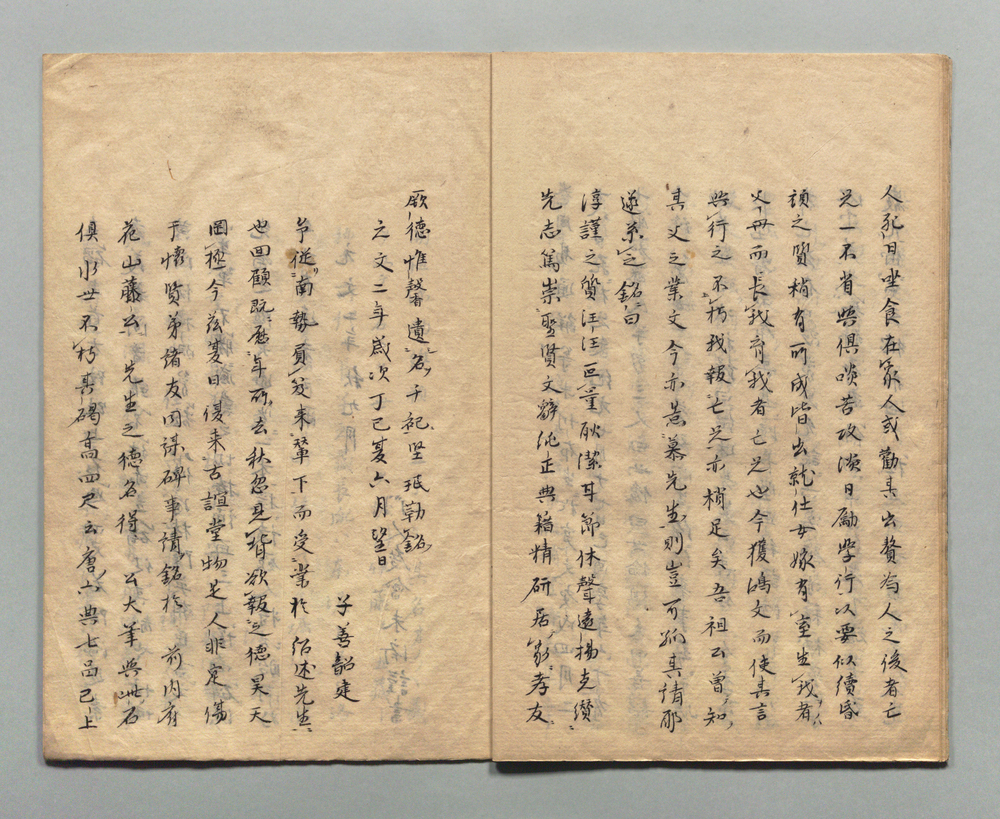 人死日坐食在家人或勸其出贅為人之後者亡
兄一不省與俱啖苦攻澹日勵學行以要似續昏
頑之質稍有所成皆出就仕女嫁有室生我者
父母而長我育我者亡兄也今獲鴻文而使其言
與行之不朽我報亡兄亦稍足矣吾祖公曾知
其父之業文今亦景慕先生則豈可孤其請耶
遂系之銘曰
淳謹之質汪汪叵量耿潔耳節休聲遠揚克纘
先志篤崇聖賢文辭純正典籍精研居家孝友
厥德惟馨遺名千祀坚珉勒銘
元文二年歲次丁巳夏六月望日
子善韶建
予從南勢負笈来輦下而受業於紹述先生
也回顧既歷年所去秋忽見背欲報之德昊天
罔極今茲夏日優来古誼堂物是人非定傷
于懷賢弟諸友同謀碑事請銘於 前内府
花山藤公先生之德名得 公大筆與世名
俱永世不朽其碣高四尺云唐六典七品已上